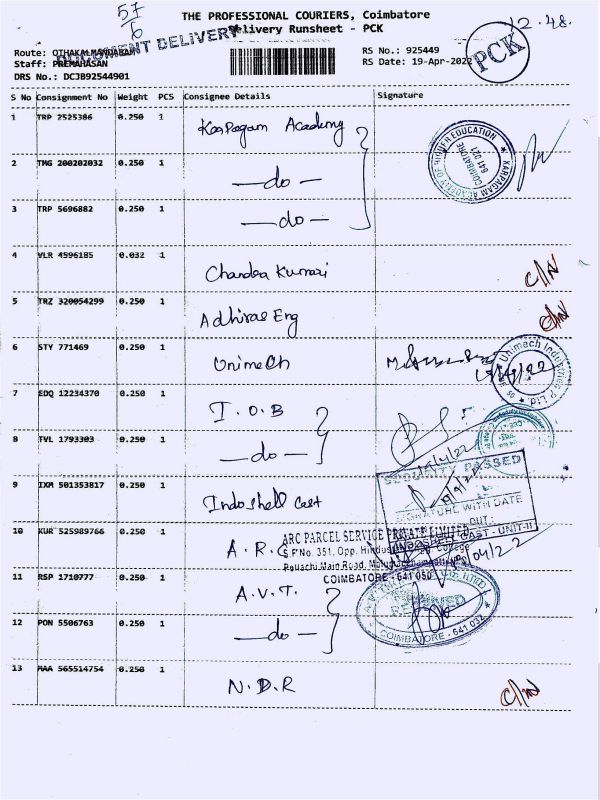 57
6
THE PROFESSIONAL COURIERS, Coimbatore
Delivery Runsheet - PCK
12.48
PCK
DOCUMENT DELIVERY
Route: OTHAKALMANDABAM
Staff: PREMAHASAN
DRS No.: DCJB92544901
RS No.: 925449
RS Date: 19-Apr-2022
S No Consignment No Weight PCS Consignee Details Signature
1 TRP 2525386 0.250 1 Karpagam Academy
KARPAGAM ACADEMY OF HIGHER EDUCATION COIMBATORE 641 021
2 TMG 200202032 0.250 1 —do—
3 TRP 5696882 0.250 1 —do—
4 VLR 4596185 0.032 1 Chandra Kumari C/N
5 TRZ 320054299 0.250 1 Adhiras Eng C/N
6 STY 771469 0.250 1 Unimech
Unimech Industries P Ltd.
7 EDQ 12234370 0.250 1 I.O.B
8 TVL 1793303 0.250 1 —do—
SECURITY PASSED
9 IXM 501353817 0.250 1 Indoshell Cast
SIGNATURE WITH DATE
OUT:
INDOSHELL CAST - UNIT-II
10 KUR 525989766 0.250 1 A.R.C
ARC PARCEL SERVICE PRIVATE LIMITED
S.F.No. 351, Opp. Hindustan College
Pollachi Main Road,
COIMBATORE - 641 050
11 RSP 1710777 0.250 1 A.V.T.
12 PON 5506763 0.250 1 —do—
COIMBATORE - 641 032
13 MAA 565514754 0.250 1 N.D.R C/N